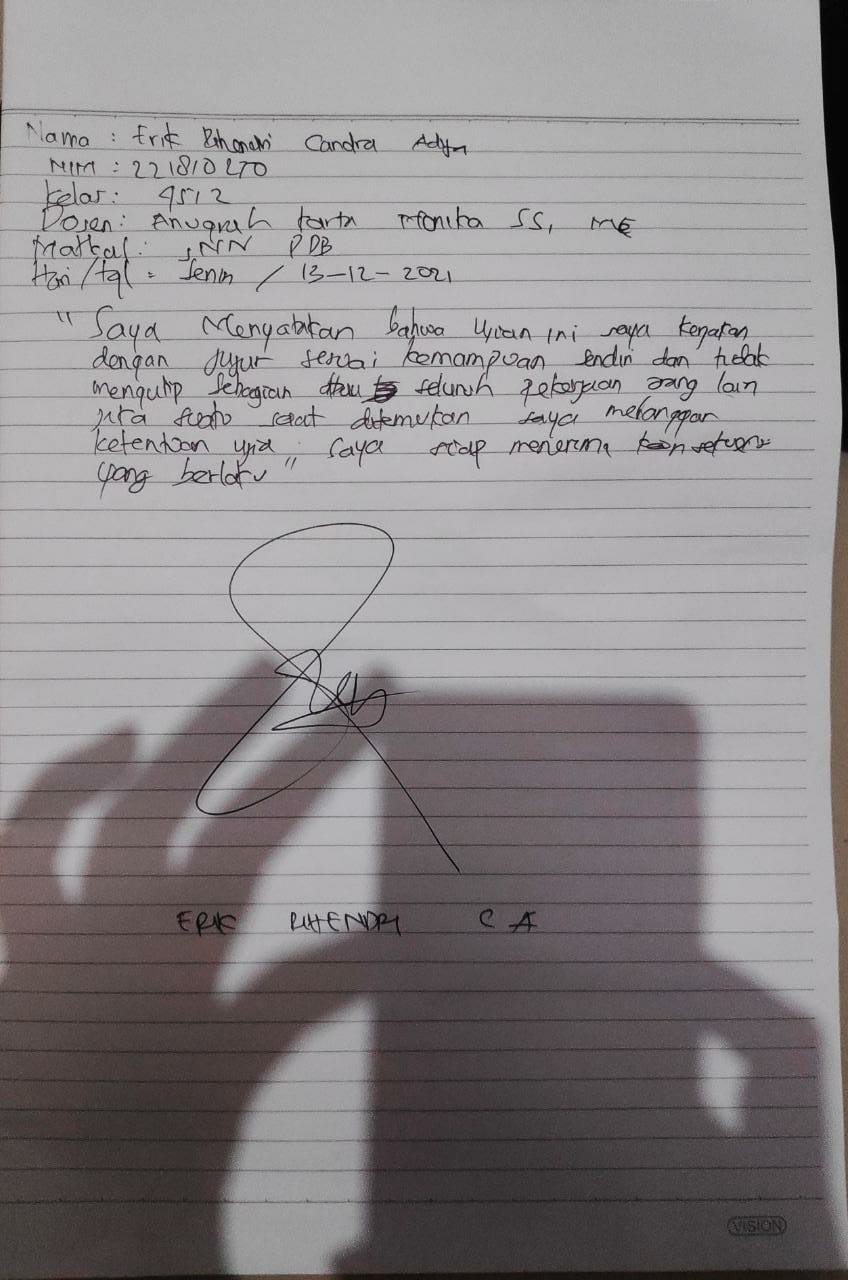 Nama : Erik Rihendri Candra Adya
NIM : 221810270
Kelas : 4SI2
Dosen : Anugrah Karta Monika SS, ME
Matkul : SNN PDB
Hari/tgl : Senin / 13-12-2021
"Saya Menyatakan bahwa Ujian ini saya kerjakan
dengan jujur sesuai kemampuan sendiri dan tidak
mengutip sebagian atau seluruh pekerjaan orang lain
jika suatu saat ditemukan saya melanggar
ketentuan ujia, saya siap menerima
yang berlaku"
ERIK RIHENDRI C A
VISION